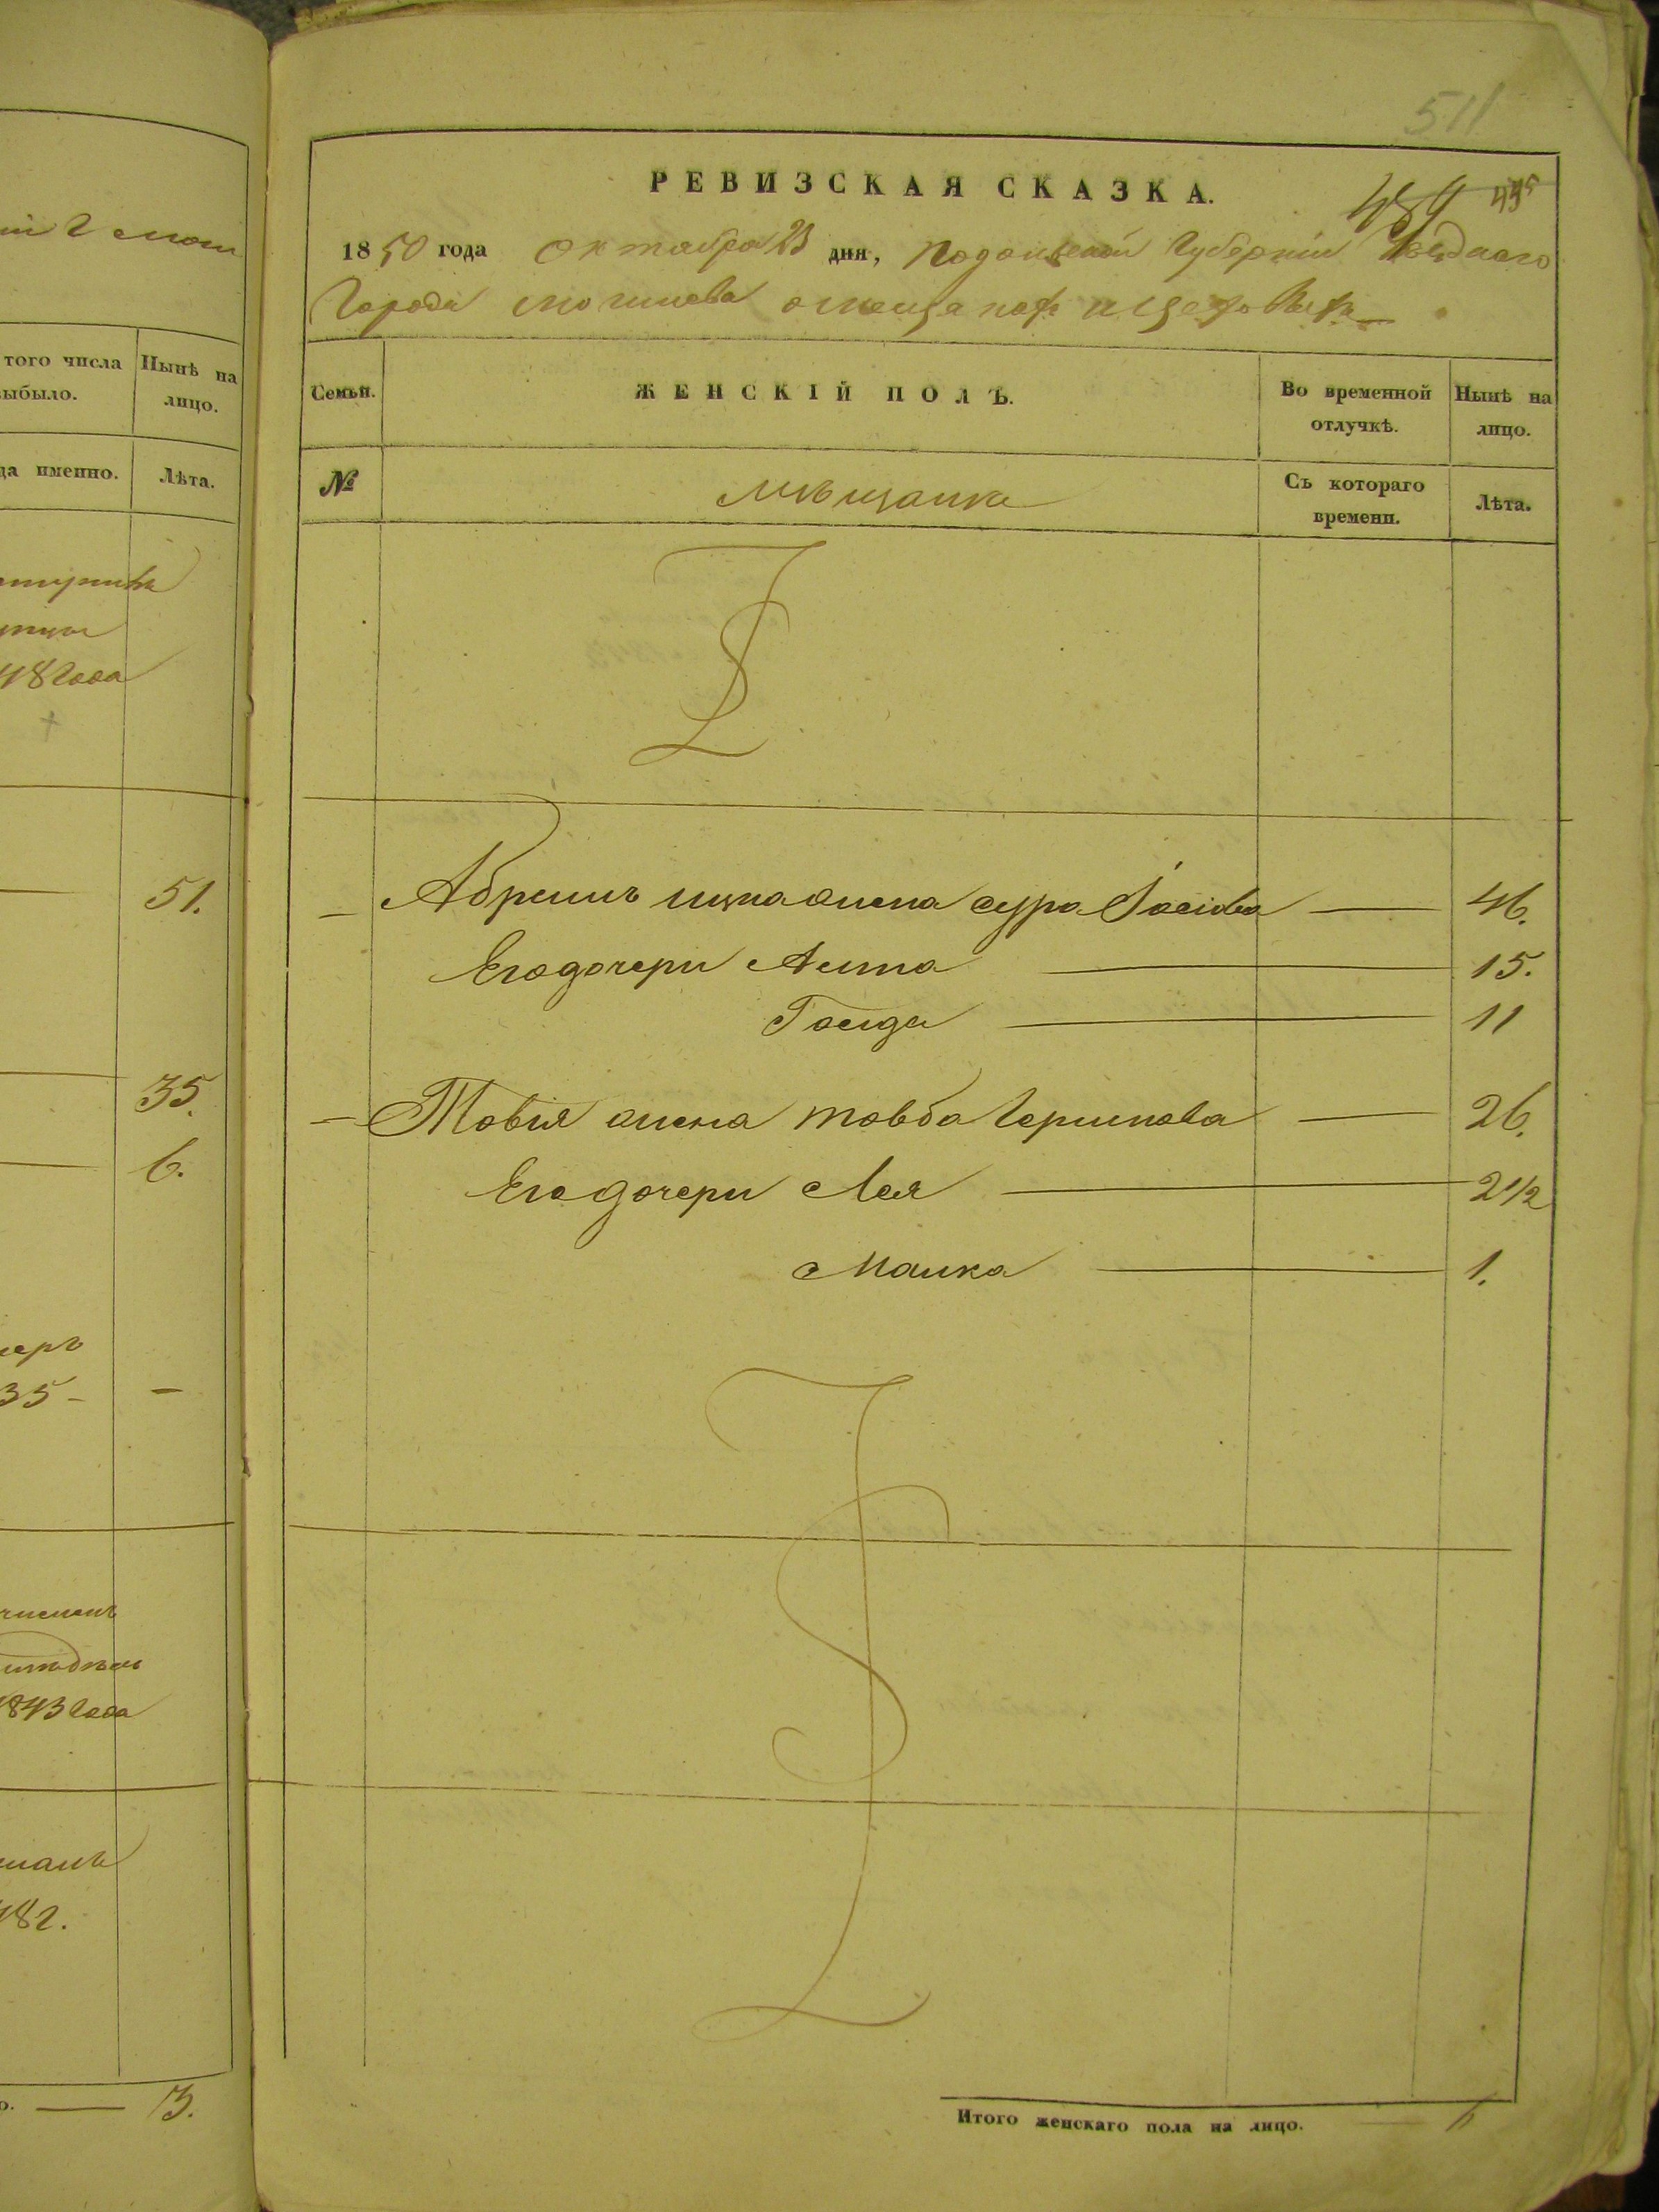 того числа
выбыло.
Нынѣ на
лицо.
да именно.
Лѣта.
48 года
51.
35.
6.
35 -
1843 года
48 г.
3.
511
РЕВИЗСКАЯ СКАЗКА.
484 435
1850 года Октября 23 дня, Подольской Губерніи Уѣзднаго
Города Могилева о мещанахъ и цеховыхъ
Семьи.
ЖЕНСКІЙ ПОЛЪ.
Во временной
отлучкѣ.
Нынѣ на
лицо.
№
Мѣщанка
Съ котораго
времени.
Лѣта.
Абрамъ Ицка жена Сура Іосіова 46.
Его дочери Асита 15.
Гоелда 11
Товія жена Товба Гершкова 26.
Его дочери Лея 2 1/2
Малка 1.
Итого женскаго пола на лицо. 6